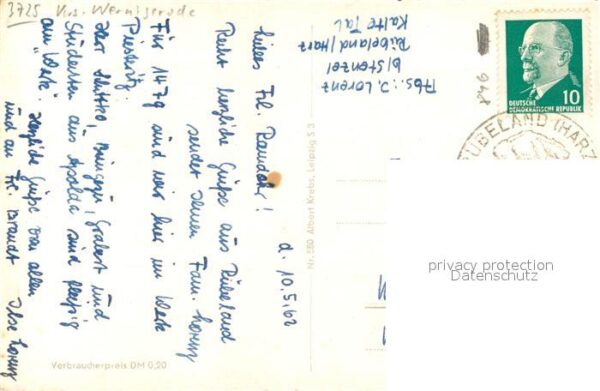 3725 Krs. Wernigerode
d. 10.5.62
Liebes Frl.
Recht herzliche Grüße aus Rübeland
sendet Ihnen Fam. Lorenz
Für 147g sind wir hier im Werk
Herr und
Studenten aus Apolda sind fleißig
am "Werk". Herzliche Grüße von allen
und an Fr. Brandt Ilse Lorenz
Abs. J. Lorenz
b/Stenzel
Rübeland/Harz
Kalte Tal
948
DEUTSCHE
DEMOKRATISCHE REPUBLIK
10
RÜBELAND (HARZ)
Nr. 580 Albert Krebs, Leipzig S 3
Verbraucherpreis DM 0,20
privacy protection
Datenschutz